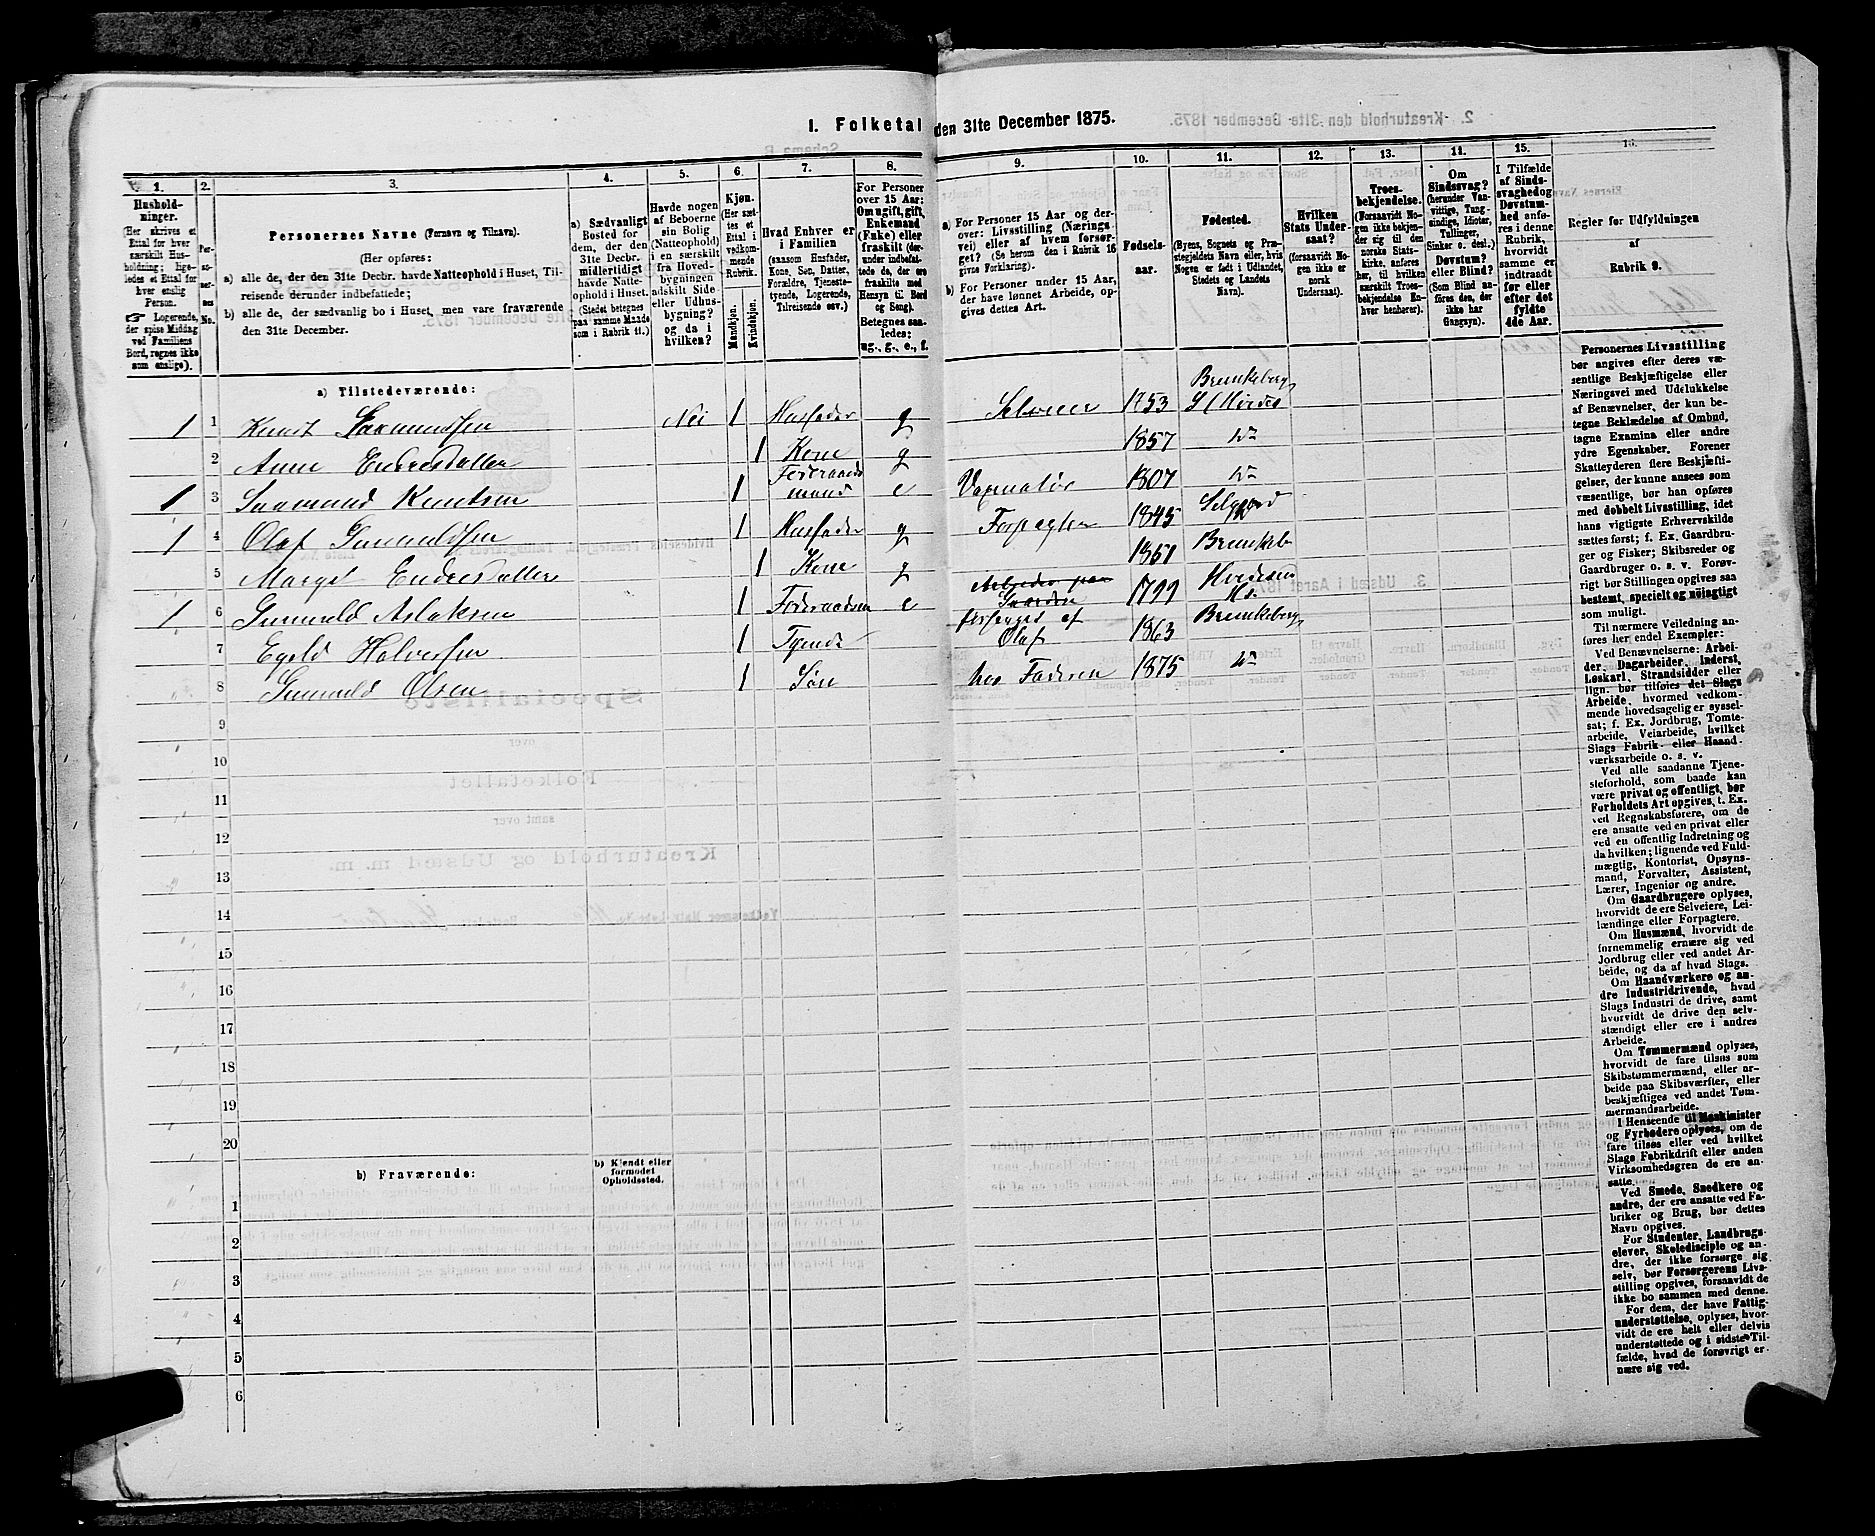 I. Folketal den 31te December 1875.
1.
2.
3.
4.
5.
6.
7.
8.
9.
10.
11.
12.
13.
14.
15.
16.
Hushold-
ninger.
(Her skrives et
Ettal for hver
særskilt Hus-
holdning; lige-
ledes et Ettal for
hver enslig
Person.
☞ Logerende,
der spise Middag
ved Familiens
Bord, regnes ikke
som enslige).
Per-
so-
ner-
nes
No.
Personernes Navne (Fornavn og Tilnavn).
(Her opføres:
a) alle de, der den 31te Decbr. havde Natteophold i Huset, Til-
reisende derunder indbefattede;
b) alle de, der sædvanlig bo i Huset, men vare fraværende
den 31te December.
a) Sædvanligt
Bosted for
dem, der den
31te Decbr.
midlertidigt
havde Natte-
ophold i Huset.
(Stedet betegnes
paa samme Maade
som i Rubrik 11.)
Havde nogen
af Beboerne
sin Bolig
(Natteophold)
i en særskilt
fra Hoved-
bygningen
adskilt Side
eller Udhus-
bygning?
og da i
hvilken?
Kjøn.
(Her sæt-
tes et
Ettal i
vedkom-
mende
Rubrik.
Mandkjøn.
Kvindekjøn.
Hvad Enhver er
i Familien
(saasom Husfader,
Kone, Søn, Datter,
Forældre, Tjeneste-
tyende, Logerende,
Tilreisende osv.)
For Personer
over 15 Aar:
Om ugift, gift,
Enkemand
(Enke) eller
fraskilt (der-
under indbefat-
tede de, der ere
fraskilte med
Hensyn til Bord
og Seng).
Betegnes saa-
ledes:
ug., g., e., f.
a) For Personer 15 Aar og der-
over: Livsstilling (Nærings-
vei) eller af hvem forsør-
get? (Se herom den i Rubrik 16
givne Forklaring).
b) For Personer under 15 Aar,
der have lønnet Arbeide, op-
gives dettes Art.
Fødsels-
aar.
Fødested.
(Byens, Sognets og Præ-
stegjeldets Navn eller, hvis
Nogen er født i Udlandet,
Stedets og Landets
Navn).
Hvilken
Stats Under-
saat?
(forsaavidt No-
gen ikke er
norsk
Undersaat).
Troes-
bekjendelse.
(Forsaavidt No-
gen ikke bekjen-
der sig til den
norske Stats-
kirke, anføres
her, til hvilken
særskilt Troes-
bekjendelse En-
hver henhører).
Om
Sindssvag?
(herunder Van-
vittige, Tung-
sindige, Idioter,
Tullinger,
Sinker o. desl.)
Døvstum?
eller Blind?
(Som Blind an-
føres den, der
ikke har
Gangsyn).
I Tilfælde
af Sinds-
svaghed og
Døvstum-
hed anfø-
res i denne
Rubrik,
hvorvidt
samme er
indtraadt
før eller
efter det
fyldte
4de Aar.
Regler for Udfyldningen
af
Rubrik 9.
a) Tilstedeværende:
1 1 Knut Saamundsen Nei 1 Husfader g Selveier 1753 Brunkeberg S/Hvides
2 Anne Endresdatter 1 Kone g 1857 do
1 3 Saamund Knutsen 1 Føderaads mand e 1807 do
1 4 Olaf Gunnuldsen 1 Husfader g Forpagter 1845
5 Margit Endresdatter 1 Kone g 1851 Brunkeb
1 6 Gunnuld Aslaksen 1 e Arbeider paa Gaarden 1799 Hvideseid
7 Egeld Halvorsen 1 Tyende forsørget af Olaf 1863 Brunkeberg
8 Gunnuld Olsen 1 Søn hos Faderen 1875 do
9
10
11
12
13
14
15
16
17
18
19
20
b) Fraværende:
b) Kjendt eller
formodet
Opholdssted.
1
2
3
4
5
6
Personernes Livsstilling
bør angives efter deres væ-
sentlige Beskjæftigelse eller
Næringsvei med Udelukkelse
af Benævnelser, der kun be-
tegne Beklædelse af Ombud,
tagne Examina eller andre
ydre Egenskaber. Forener
Skatteyderen flere Beskjæfti-
gelser, der kunne ansees som
væsentlige, bør han opføres
med dobbelt Livsstilling, idet
hans vigtigste Erhvervskilde
sættes først; f. Ex. Gaardbru-
ger og Fisker; Skibsreder og
Gaardbruger o. s. v. Forøv-
rigt bør Stillingen opgives saa
bestemt, specielt og nøiagtigt
som muligt.
Til nærmere Veiledning an-
føres her endel Exempler:
Ved Benævnelserne: Arbei-
der, Dagarbeider, Inderst,
Løskarl, Strandsidder eller
lign. bør tilføies det Slags
Arbeide, hvormed vedkom-
mende hovedsagelig er syssel-
sat; f. Ex. Jordbrug, Tomte-
arbeide, Veiarbeide, hvilket
Slags Fabrik- eller Haand-
værksarbeide o. s. v.
Ved alle saadanne Tjene-
steforhold, som baade kan
være privat og offentligt, bør
Forholdets Art opgives, t. Ex.
ved Regnskabsførere, om de
ere ansatte ved en privat eller
ved en offentlig Indretning og
da hvilken; lignende ved Fuld-
mægtig, Kontorist, Opsyns-
mand, Forvalter, Assistent,
Lærer, Ingeniør og andre.
Om Gaardbrugere oplyses,
hvorvidt de ere Selveiere, Lei-
lændinge eller Forpagtere.
Om Husmænd, hvorvidt de
fornemmelig ernære sig ved
Jordbrug eller ved andet Ar-
beide, og da af hvad Slags.
Om Haandværkere og an-
dre Industridrivende, hvad
Slags Industri de drive, samt
hvorvidt de drive den selv-
stændigt eller ere i andres
Arbeide.
Om Tømmermænd oplyses,
hvorvidt de fare tilsøs som
Skibstømmermænd, eller ar-
beide paa Skibsværfter, eller
beskjæftiges ved andet Tøm-
mermandsarbeide.
I Henseende til Maskinister
og Fyrbødere oplyses, om de
fare tilsøs eller ved hvilket
Slags Fabrikdrift eller anden
Virksomhedsgren de ere an-
satte.
Ved Smede, Snedkere og
andre, der ere ansatte ved Fa-
briker og Brug, bør dettes
Navn opgives.
For Studenter, Landbrugs-
elever, Skoledisciple og an-
dre, der ikke forsørge sig
selv, bør Forsørgerens Livs-
stilling opgives, forsaavidt de
ikke bo sammen med denne.
For dem, der have Fattig-
understøttelse, oplyses, hvor-
vidt de ere helt eller delvis
understøttede og i sidste Til-
fælde, hvad de forøvrigt er-
nære sig ved.